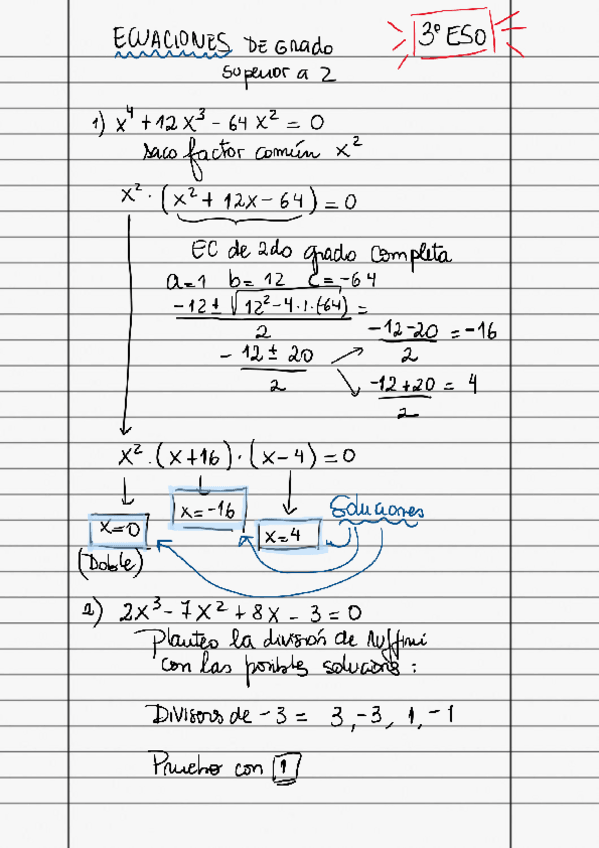 ECUACIONES DE Grado
superior a 2
3º ESO
1) x⁴ + 12x³ - 64x² = 0
saco factor común x²
x² · (x² + 12x - 64) = 0
EC de 2do grado completa
a=1 b=12 c=-64
-12 ± √12² - 4·1·(-64) =
2
-12-20 = -16
2
- 12 ± 20
2
-12+20 = 4
2
x² · (x+16) · (x-4) = 0
x=0
x=-16
x=4
Soluciones
(Doble)
2) 2x³ - 7x² + 8x - 3 = 0
Planteo la división de Ruffini
con las posibles solucions :
Divisors de -3 = 3, -3, 1, -1
Pruebo con 1